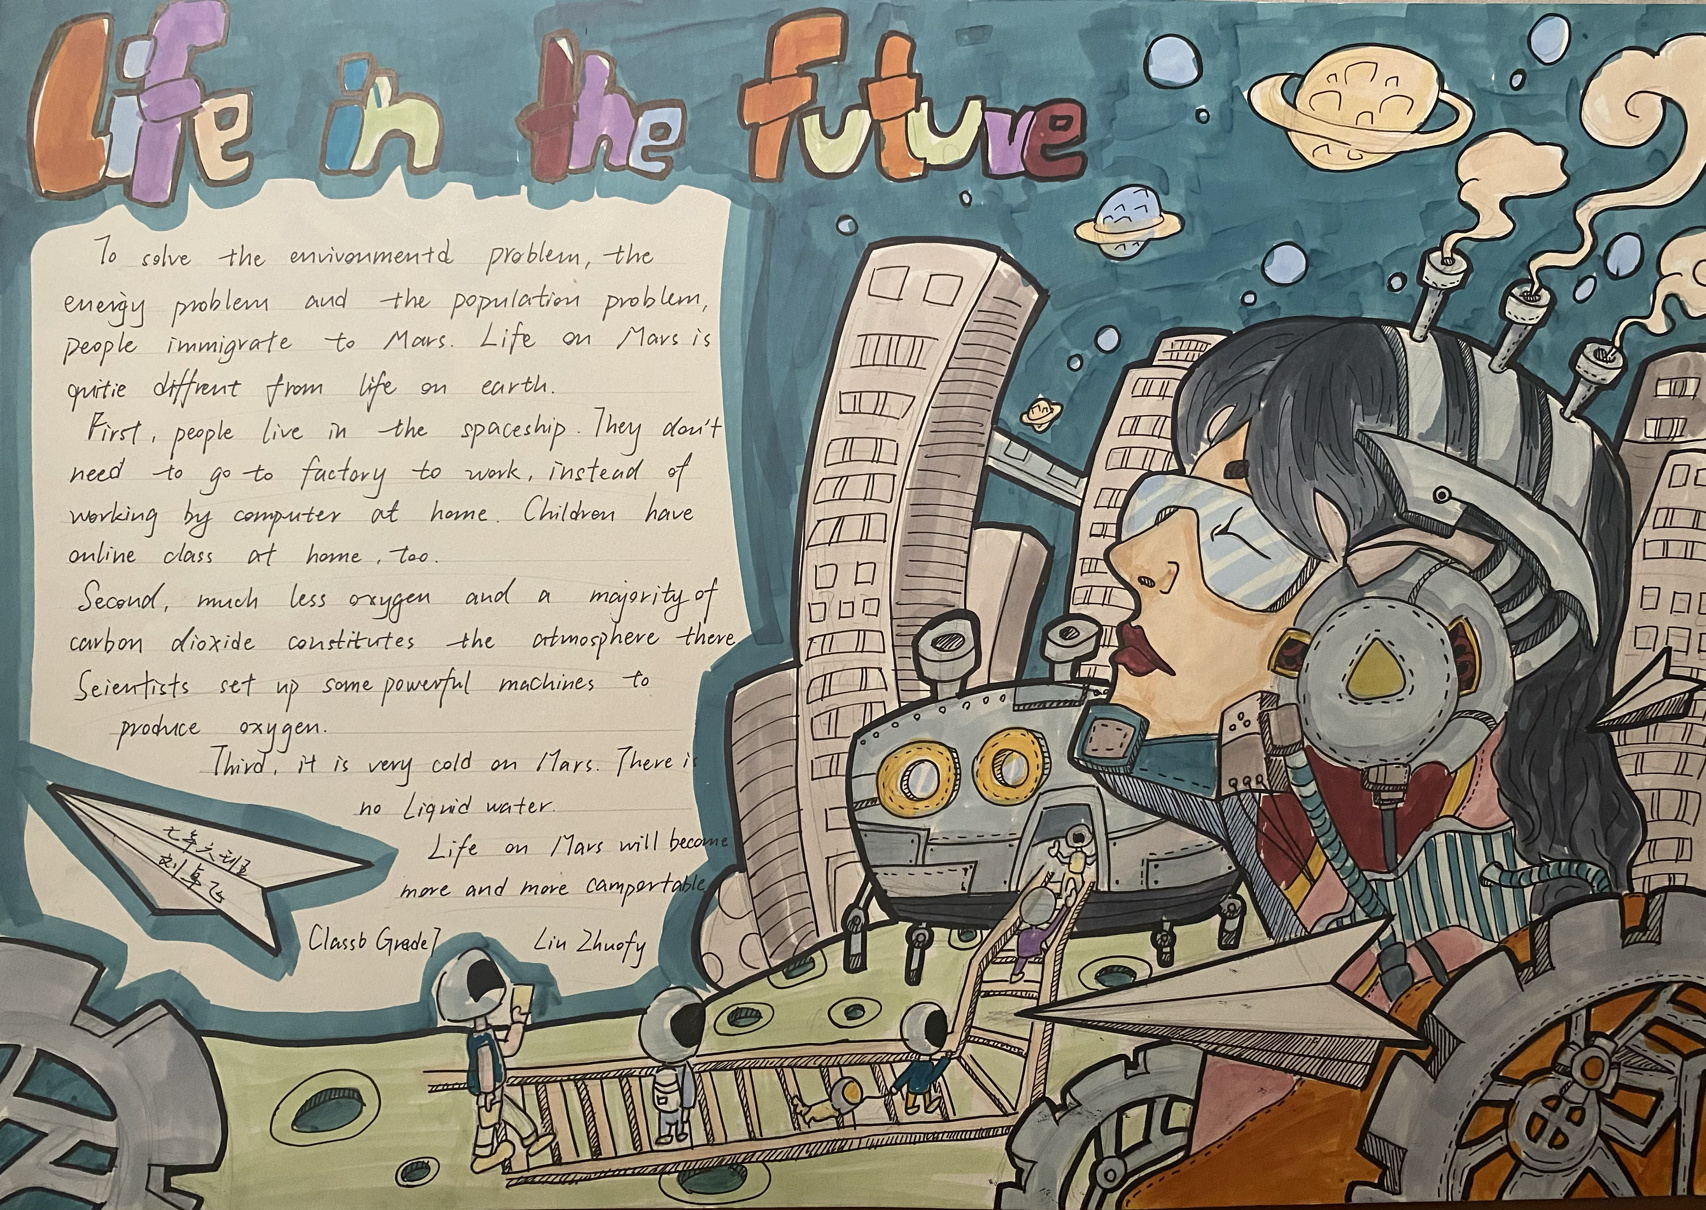 Life in the Future
To solve the environmentd problem, the
energy problem and the population problem,
people immigrate to Mars. Life on Mars is
quitie diffrent from life on earth.
First, people live in the spaceship. They don't
need to go to factory to work, instead of
working by computer at home. Children have
online class at home, too.
Second, much less oxygen and a majority of
carbon dioxide constitutes the atmosphere there
Seientists set up some powerful machines to
produce oxygen.
Third, it is very cold on Mars. There is
no Liquid water.
Life on Mars will become
more and more campertable.
七年六班
刘卓飞
Class6 Grade7 Liu Zhuofy